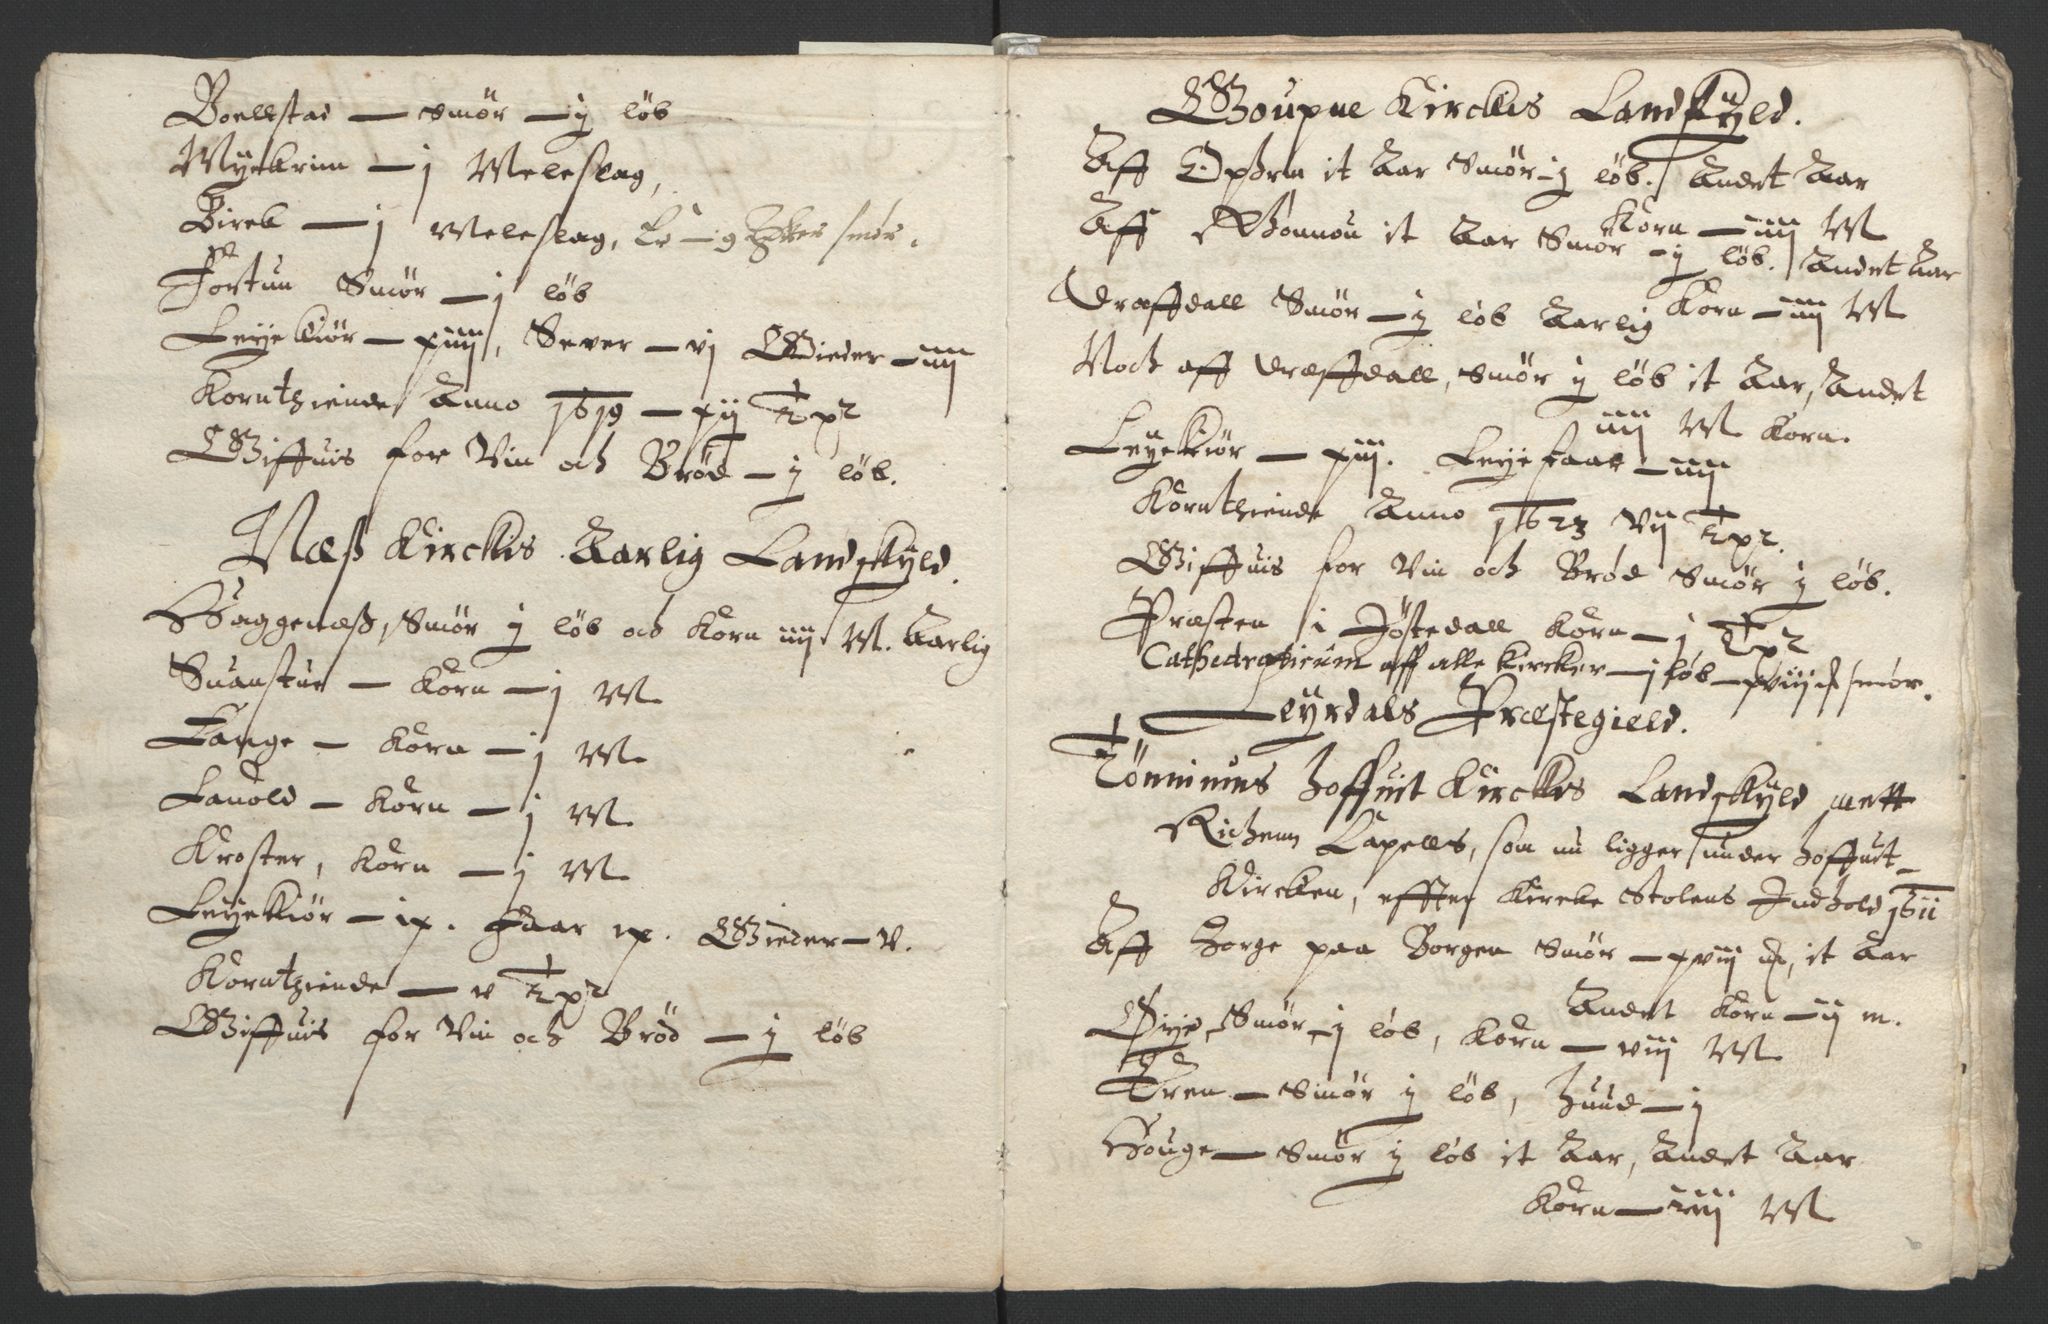 Boellstad — Smør — ij løb
Myekrim — j Meleslag,
Birck — j Meleslag, Er — ij smør.
Fortun Smør — j løb
Leyekiør — xiiij, Sever — vj Gieder — iiij
Korntziende Anno 1619 — xij Tpr
Giffuis for Vin och Brød — ij løb.
Næß Kirckis Aarlig Landskyld.
Haggenæß, Smør ij løb och Korn iiij M. Aarlig
Suanstue — Korn — j M
Tange — Korn — j M.
Lauold — Korn — j M.
Kroster, Korn — ij M
Leyekiør — ix. Faar ix. Gieder — v.
Korntziende — v Tpr
Giffuis for Vin och Brød — ij løb
Goupne Kirckis Landskyld.
Aff Opþen it Aar Smør ij løb. Andet Aar
Korn — iiij M
Aff Rønnou it Aar Smør — ij løb. Andet Aar
Korn — iiij M
Dræffdall Smør — ij løb Aarlig
Noch aff Dræffdall, Smør ij løb it Aar, Andet
iiij M Korn.
Leyekiør — xiij. Leyefaar — iiij
Korntziende Anno 1623 vij Tpr.
Giffuis for Vin och Brød Smør ij løb.
Præsten i Jöstedall Korn — j Tpr
Cathedraticum aff alle kircker — j løb — xviij smør.
Leyrdals Præstegield.
Tönnimms hoffuit Kirckes Landskyld mett
Richeim Capells, som nu ligger under hoffuit-
Kircken, effter Kircke Stolens Indhold 1611
Aff Horge paa Borgen Smør — xviij it Aar
Andet Korn — iij m.
Øije, Smør — ij løb, Korn — viij M
Tren — Smør ij løb, huud — j
Houge — Smør ij løb it Aar, Andet Aar
Korn — viij M